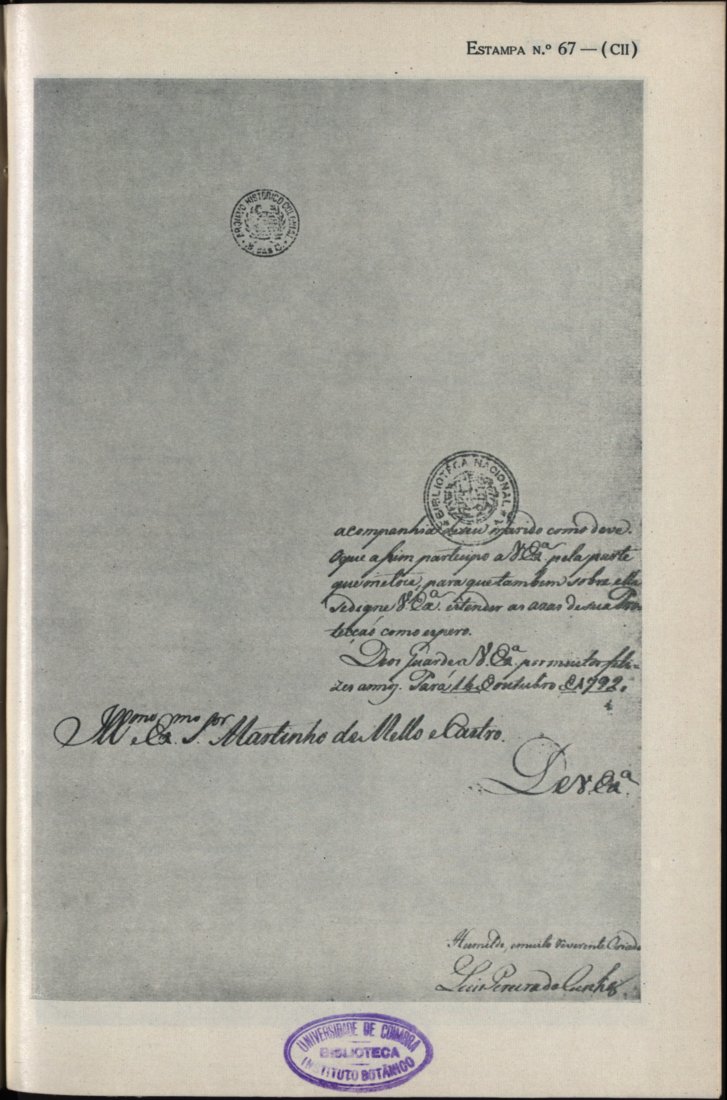 ESTAMPA N.º 67 — (CII)
ARQUIVO HISTÓRICO COLONIAL
BIBLIOTECA NACIONAL
acompanhia deseu marido como deve.
Oque assim participo a V. Exª. pela parte
que me toca, para que tambem sobre ella
Sedigne V. Exª. estender as azas desua Pro-
tecçaõ como espero.
Deos Guarde a V. Exª. por muitos feli-
zes annos. Pará 16 Outubro 1792.
Illmo e Exmo Sor Martinho de Mello e Castro.
De V. Exª.
Humilde, emuito reverente Criado
Luis Pereira da Cunha
UNIVERSIDADE DE COIMBRA
BIBLIOTECA
INSTITUTO BOTÂNICO